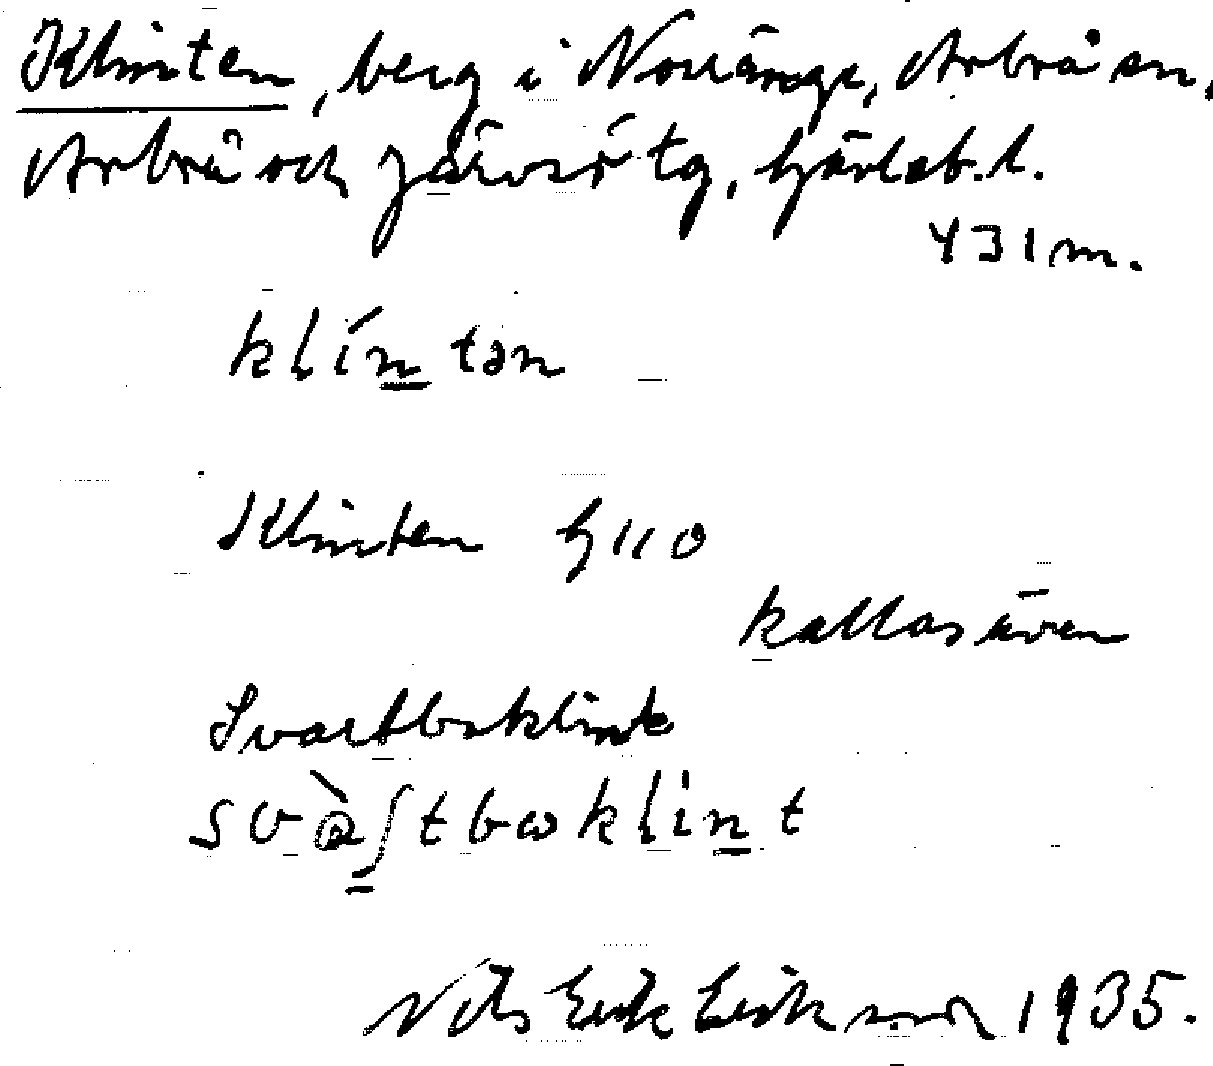 Klinten, berg i Norränge, Arbrå sn,
Arbrå och Järvsö tg, Gävleb. l.
431 m.
klíntən
Klinten G110
kallas även
Svartboklint
Nils Erik Eriksson 1935.